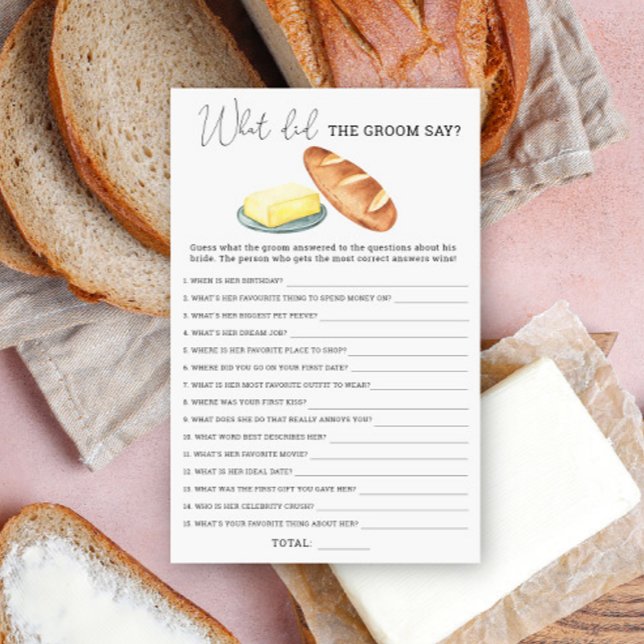 What did THE GROOM SAY?
Guess what the groom answered to the questions about his
bride. The person who gets the most correct answers wins!
1. WHEN IS HER BIRTHDAY?
2. WHAT'S HER FAVOURITE THING TO SPEND MONEY ON?
3. WHAT'S HER BIGGEST PET PEEVE?
4. WHAT'S HER DREAM JOB?
5. WHERE IS HER FAVORITE PLACE TO SHOP?
6. WHERE DID YOU GO ON YOUR FIRST DATE?
7. WHAT IS HER MOST FAVORITE OUTFIT TO WEAR?
8. WHERE WAS YOUR FIRST KISS?
9. WHAT DOES SHE DO THAT REALLY ANNOYS YOU?
10. WHAT WORD BEST DESCRIBES HER?
11. WHAT'S HER FAVORITE MOVIE?
12. WHAT IS HER IDEAL DATE?
13. WHAT WAS THE FIRST GIFT YOU GAVE HER?
14. WHO IS HER CELEBRITY CRUSH?
15. WHAT'S YOUR FAVORITE THING ABOUT HER?
TOTAL: